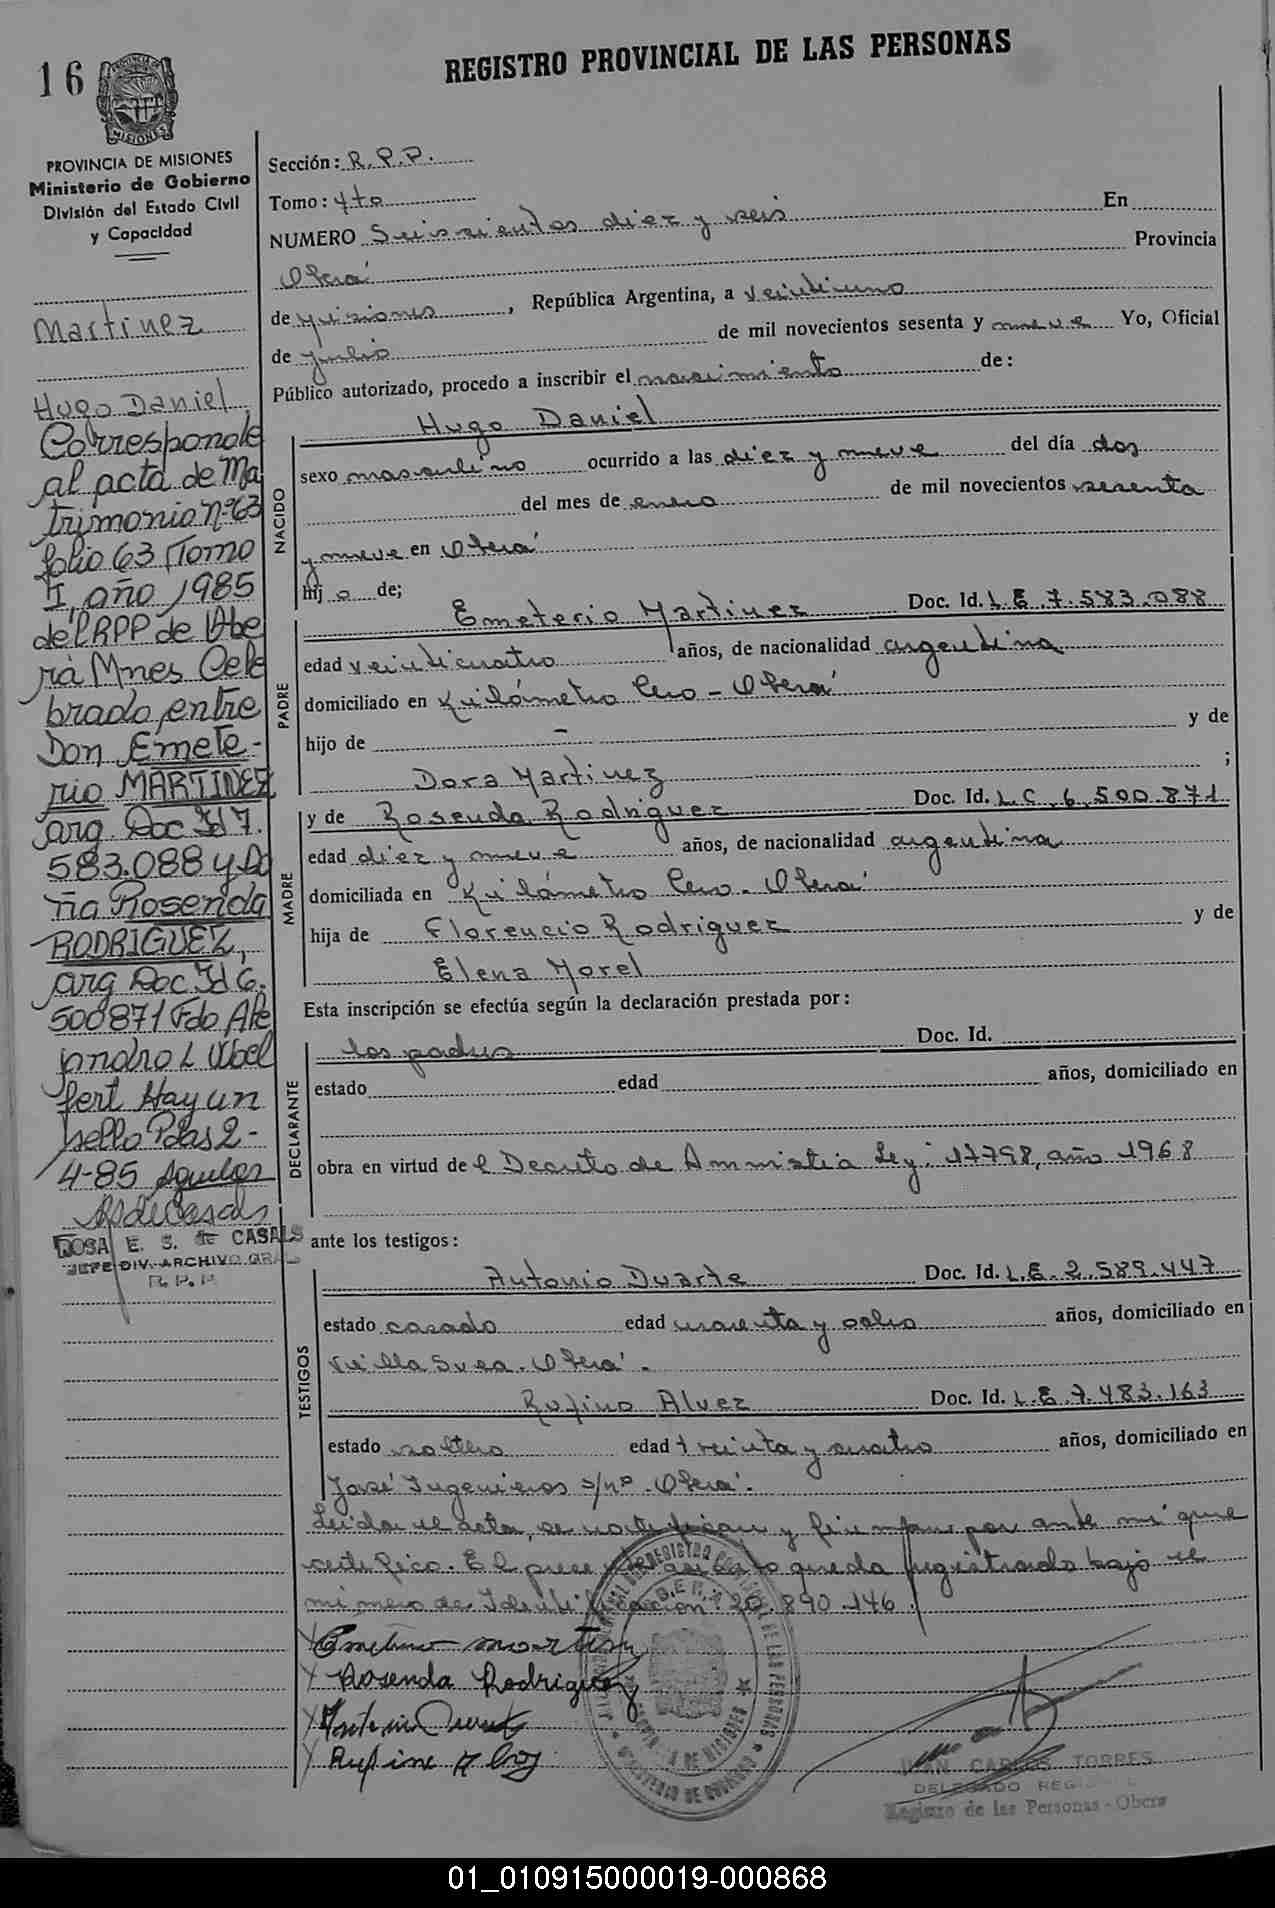 REGISTRO PROVINCIAL DE LAS PERSONAS
16
MISIONES
PROVINCIA DE MISIONES
Ministerio de Gobierno
División del Estado Civil
y Capacidad
Martinez
Hugo Daniel
Corresponde
al acta de Ma
trimonio nº 63
folio 63 Tomo
I, año 1985
del RPP de Obe
rá Mnes Cele
brado entre
Don Emete-
rio MARTINEZ
arg. Doc Id 7.
583.088 y Do
ña Rosenda
RODRIGUEZ,
arg Doc Id 6.
500871 Fdo Ale
jandro L
Hay un
sello Pdas 2-
4-85
ROSA E. S. de CASALS
JEFE DIV. ARCHIVO GRAL
R.P.P.
Sección: R.P.P.
Tomo: 4to
NUMERO Seiscientos diez y seis En
Oberá Provincia
de Misiones, República Argentina, a veintiuno
de julio de mil novecientos sesenta y nueve Yo, Oficial
Público autorizado, procedo a inscribir el nacimiento de:
Hugo Daniel
NACIDO
sexo masculino ocurrido a las diez y nueve del día dos
del mes de enero de mil novecientos sesenta
y nueve en Oberá
hijo de;
PADRE
Emeterio Martinez Doc. Id. L.E. 7.583.088
edad veinticuatro años, de nacionalidad argentina
domiciliado en Kilómetro Cero - Oberá
hijo de - y de
Dora Martinez ;
MADRE
y de Rosenda Rodriguez Doc. Id. L.C. 6.500.871
edad diez y nueve años, de nacionalidad argentina
domiciliada en Kilómetro Cero - Oberá
hija de Florencio Rodriguez y de
Elena Morel
Esta inscripción se efectúa según la declaración prestada por:
DECLARANTE
los padres Doc. Id.
estado edad años, domiciliado en
obra en virtud de el Decreto de Ammistia Ley: 17798, año 1968
ante los testigos:
TESTIGOS
Antonio Duarte Doc. Id. L.E. 2.589.447
estado casado edad cuarenta y ocho años, domiciliado en
Villa Svea - Oberá.
Rufino Alvez Doc. Id. L.E. 7.483.163
estado soltero edad treinta y cuatro años, domiciliado en
José Ingenieros s/nº. Oberá.
Leída el acta, se ratifican y firman por ante mi que
certifico. El queda registrado bajo el
número de Identificación: 20.890.146.
Emeterio Martinez
Rosenda Rodriguez
Rufino Alvez
JUAN CARLOS TORRES
DELEGADO REGIONAL
Registro de las Personas - Oberá
01_010915000019-000868